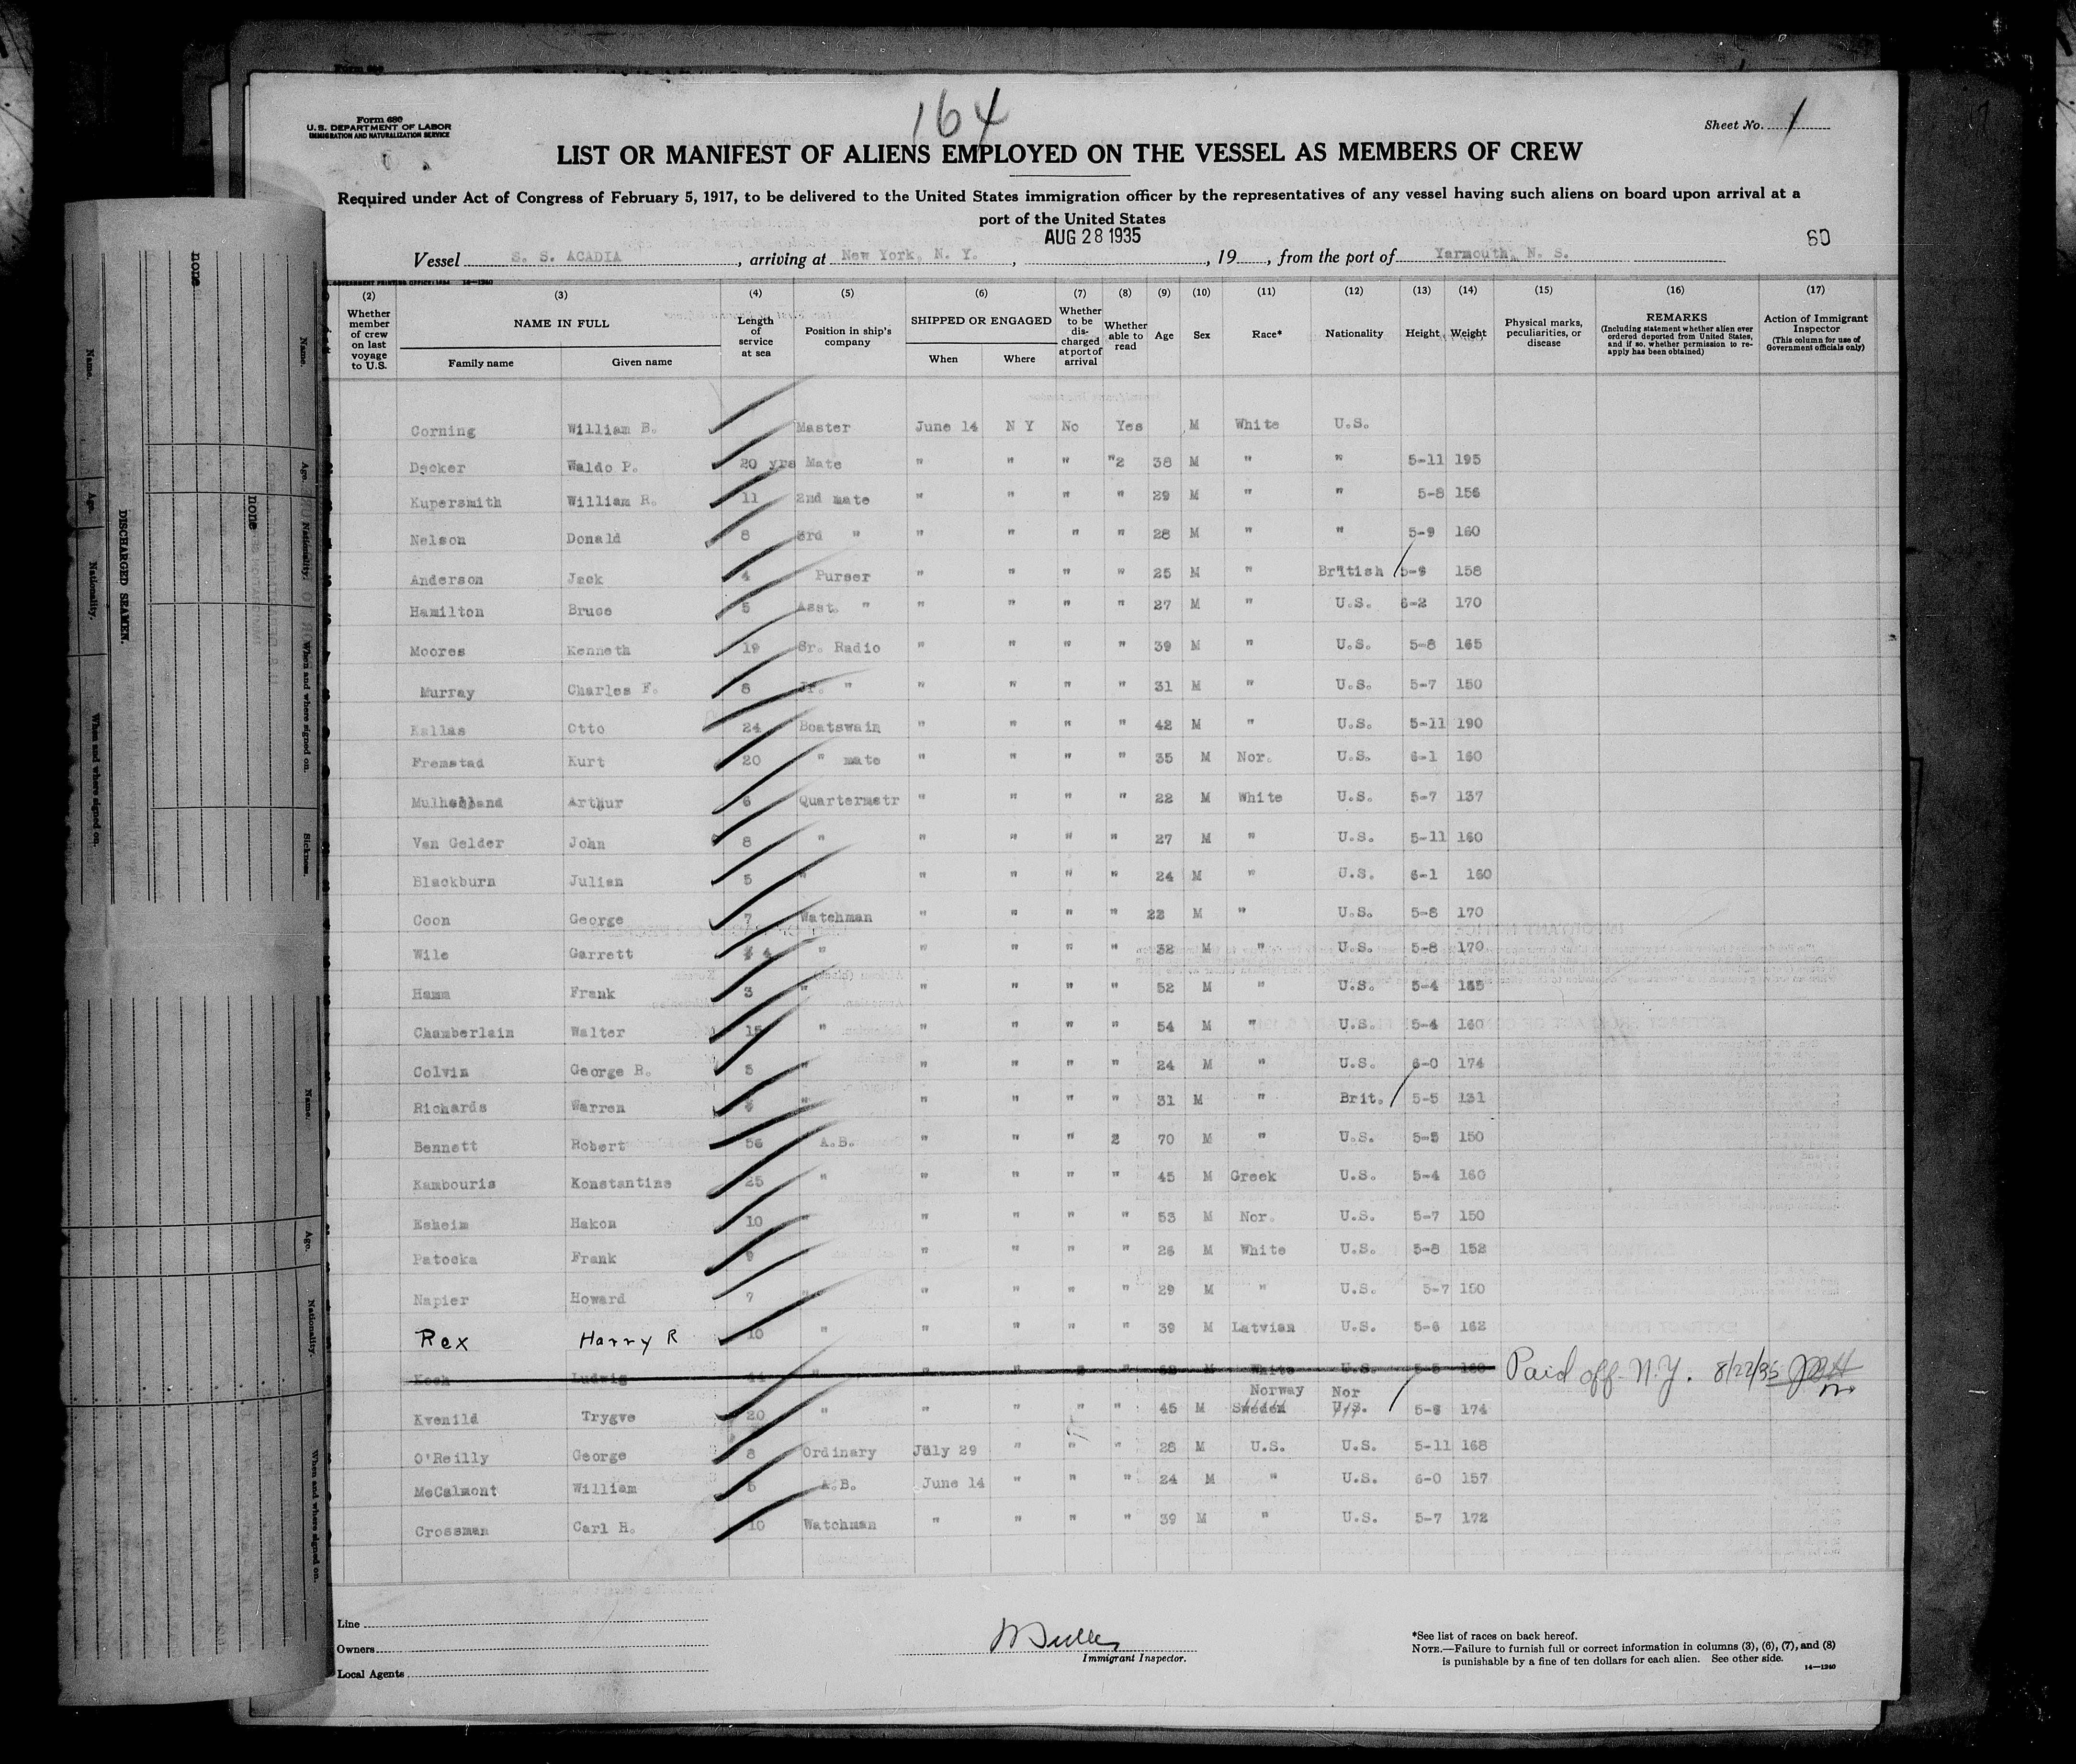 164
Form 680
U.S. DEPARTMENT OF LABOR
IMMIGRATION AND NATURALIZATION SERVICE
Sheet No. 1
LIST OR MANIFEST OF ALIENS EMPLOYED ON THE VESSEL AS MEMBERS OF CREW
Required under Act of Congress of February 5, 1917, to be delivered to the United States immigration officer by the representatives of any vessel having such aliens on board upon arrival at a
port of the United States
AUG 28 1935
60
Vessel S. S. ACADIA, arriving at New York, N. Y., , 19 , from the port of Yarmouth, N. S.
(2) (3) (4) (5) (6) (7) (8) (9) (10) (11) (12) (13) (14) (15) (16) (17)
Whether member of crew on last voyage to U.S.
NAME IN FULL
Family name Given name
Length of service at sea
Position in ship's company
SHIPPED OR ENGAGED
When Where
Whether to be discharged at port of arrival
Whether able to read
Age
Sex
Race*
Nationality
Height
Weight
Physical marks, peculiarities, or disease
REMARKS
(Including statement whether alien ever ordered deported from United States, and if so, whether permission to reapply has been obtained)
Action of Immigrant Inspector
(This column for use of Government officials only)
Corning William B. Master June 14 N Y No Yes M White U.S.
Decker Waldo P. 20 yrs Mate " " " "2 38 M " " 5-11 195
Kupersmith William R. 11 2nd mate " " " " 29 M " " 5-8 156
Nelson Donald 8 3rd " " " " " 28 M " " 5-9 160
Anderson Jack 4 Purser " " " " 25 M " British 5-9 158
Hamilton Bruce 5 Asst. " " " " " 27 M " U.S. 6-2 170
Moores Kenneth 19 Sr. Radio " " " " 39 M " U.S. 5-8 165
Murray Charles F. 8 Jr. " " " " " 31 M " U.S. 5-7 150
Kallas Otto 24 Boatswain " " " " 42 M " U.S. 5-11 190
Fremstad Kurt 20 " mate " " " " 35 M Nor. U.S. 6-1 160
Mulholland Arthur 6 Quartermstr " " " " 22 M White U.S. 5-7 137
Van Gelder John 8 " " " " " 27 M " U.S. 5-11 160
Blackburn Julian 5 " " " " " 24 M " U.S. 6-1 160
Coon George 7 Watchman " " " " 22 M " U.S. 5-8 170
Wile Garrett 4 " " " " " 32 M " U.S. 5-8 170
Hamm Frank 3 " " " " " 52 M " U.S. 5-4
Chamberlain Walter 15 " " " " " 54 M " U.S. 5-4 160
Colvin George R. 5 " " " " " 24 M " U.S. 6-0 174
Richards Warren " " " " " 31 M " Brit. 5-5 131
Bennett Robert 56 A.B. " " " 2 70 M " U.S. 5-5 150
Kambouris Konstantine 25 " " " " " 45 M Greek U.S. 5-4 160
Esheim Hakon 10 " " " " " 53 M Nor. U.S. 5-7 150
Patocka Frank 9 " " " " 26 M White U.S. 5-8 152
Napier Howard 7 " " " " " 29 M " U.S. 5-7 150
Rex Harry R 10 " " " " " 39 M Latvian U.S. 5-6 162
Koch Ludwig 44 " " " " " 52 M White U.S. 5-5 160 Paid off N.Y. 8/22/35
Norway Nor
Kvenild Trygve 20 " " " " " 45 M Sweden U.S. 5-6 174
O'Reilly George 8 Ordinary July 29 " " " 28 M U.S. U.S. 5-11 168
McCalmont William 6 A.B. June 14 " " " 24 M " U.S. 6-0 157
Crossman Carl H. 10 Watchman " " " " 39 M " U.S. 5-7 172
Line
Owners
Local Agents
Immigrant Inspector.
*See list of races on back hereof.
NOTE.—Failure to furnish full or correct information in columns (3), (6), (7), and (8)
is punishable by a fine of ten dollars for each alien. See other side.
14—1240
DISCHARGED SEAMEN.
Name.
Age.
Nationality.
When and where signed on.
Sickness.
none
none
Name.
Age.
Nationality.
When and where signed on.